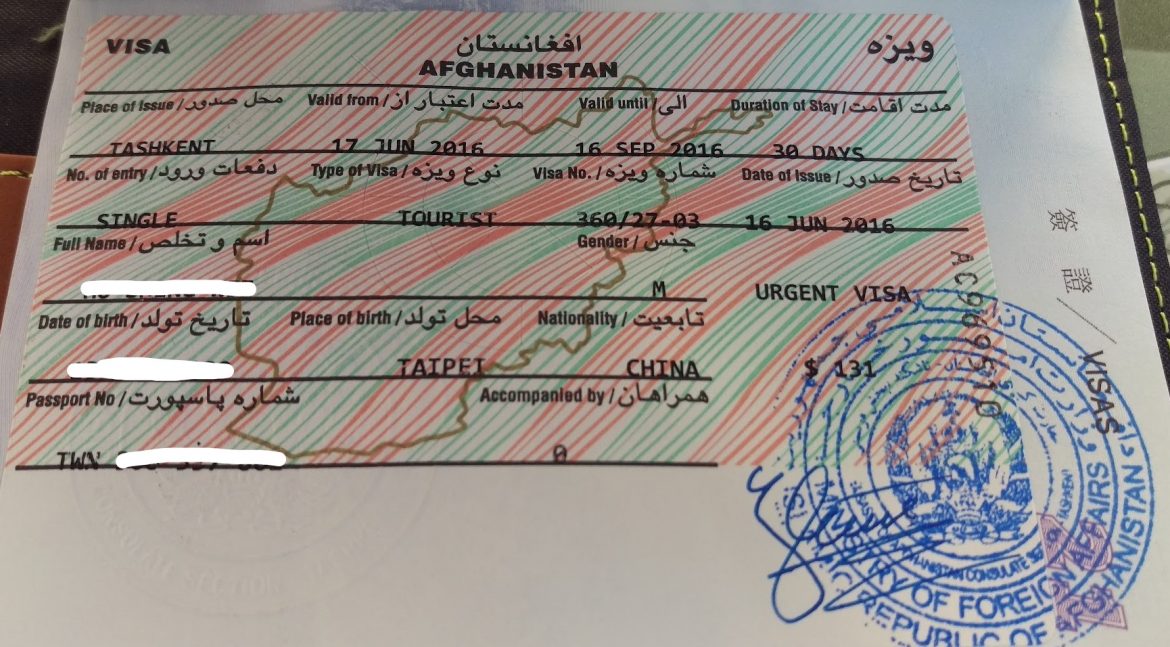 VISA افغانستان ویزه
AFGHANISTAN
Place of Issue / محل صدور Valid from / مدت اعتبار از Valid until / الی Duration of Stay / مدت اقامت
TASHKENT 17 JUN 2016 16 SEP 2016 30 DAYS
No. of entry / دفعات ورود Type of Visa / نوع ویزه Visa No. / شماره ویزه Date of Issue / تاریخ صدور
SINGLE TOURIST 360/27-03 16 JUN 2016
Full Name / اسم و تخلص Gender / جنس
M URGENT VISA
Date of birth / تاریخ تولد Place of birth / محل تولد Nationality / تابعیت
TAIPEI CHINA $ 131
Passport No / شماره پاسپورت Accompanied by / همراهان
TWN 0
簽證/VISAS
AFGHANISTAN CONSULATE
MINISTRY OF FOREIGN AFFAIRS
REPUBLIC OF AFGHANISTAN
CONSULATE SECTION